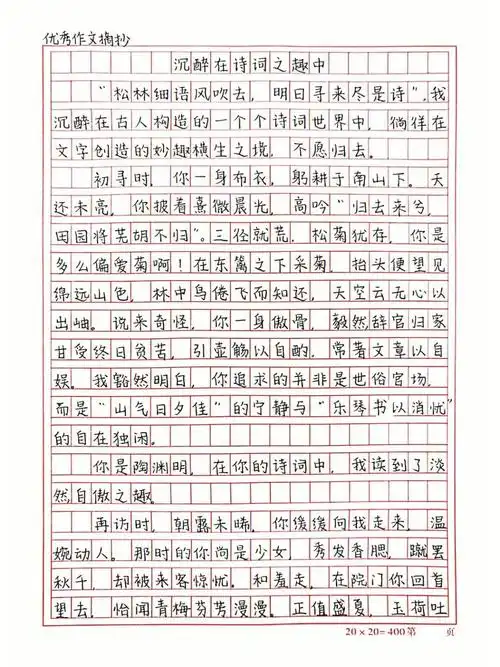 优秀作文摘抄
沉醉在诗词之趣中
“松林细语风吹去，明日寻来尽是诗”，我
沉醉在古人构造的一个个诗词世界中，徜徉在
文字创造的妙趣横生之境，不愿归去。
初寻时，你一身布衣，躬耕于南山下。天
还未亮，你披着熹微晨光，高吟“归去来兮，
田园将芜胡不归”。三径就荒，松菊犹存，你是
多么偏爱菊啊！在东篱之下采菊，抬头便望见
绵远山色，林中鸟倦飞而知还，天空云无心以
出岫。说来奇怪，你一身傲骨，毅然辞官归家
甘受终日贫苦，引壶觞以自酌，常著文章以自
娱。我豁然明白，你追求的并非是世俗官场，
而是“山气日夕佳”的宁静与“乐琴书以消忧”
的自在独闲。
你是陶渊明，在你的诗词中，我读到了淡
然自傲之趣。
再访时，朝露未晞。你缓缓向我走来，温
婉动人。那时的你尚是少女，秀发香腮，蹴罢
秋千，却被来客惊忧。和羞走，在院门你回首
望去，怡闻青梅芬芳漫漫。正值盛夏，玉荷吐
20×20=400第 页